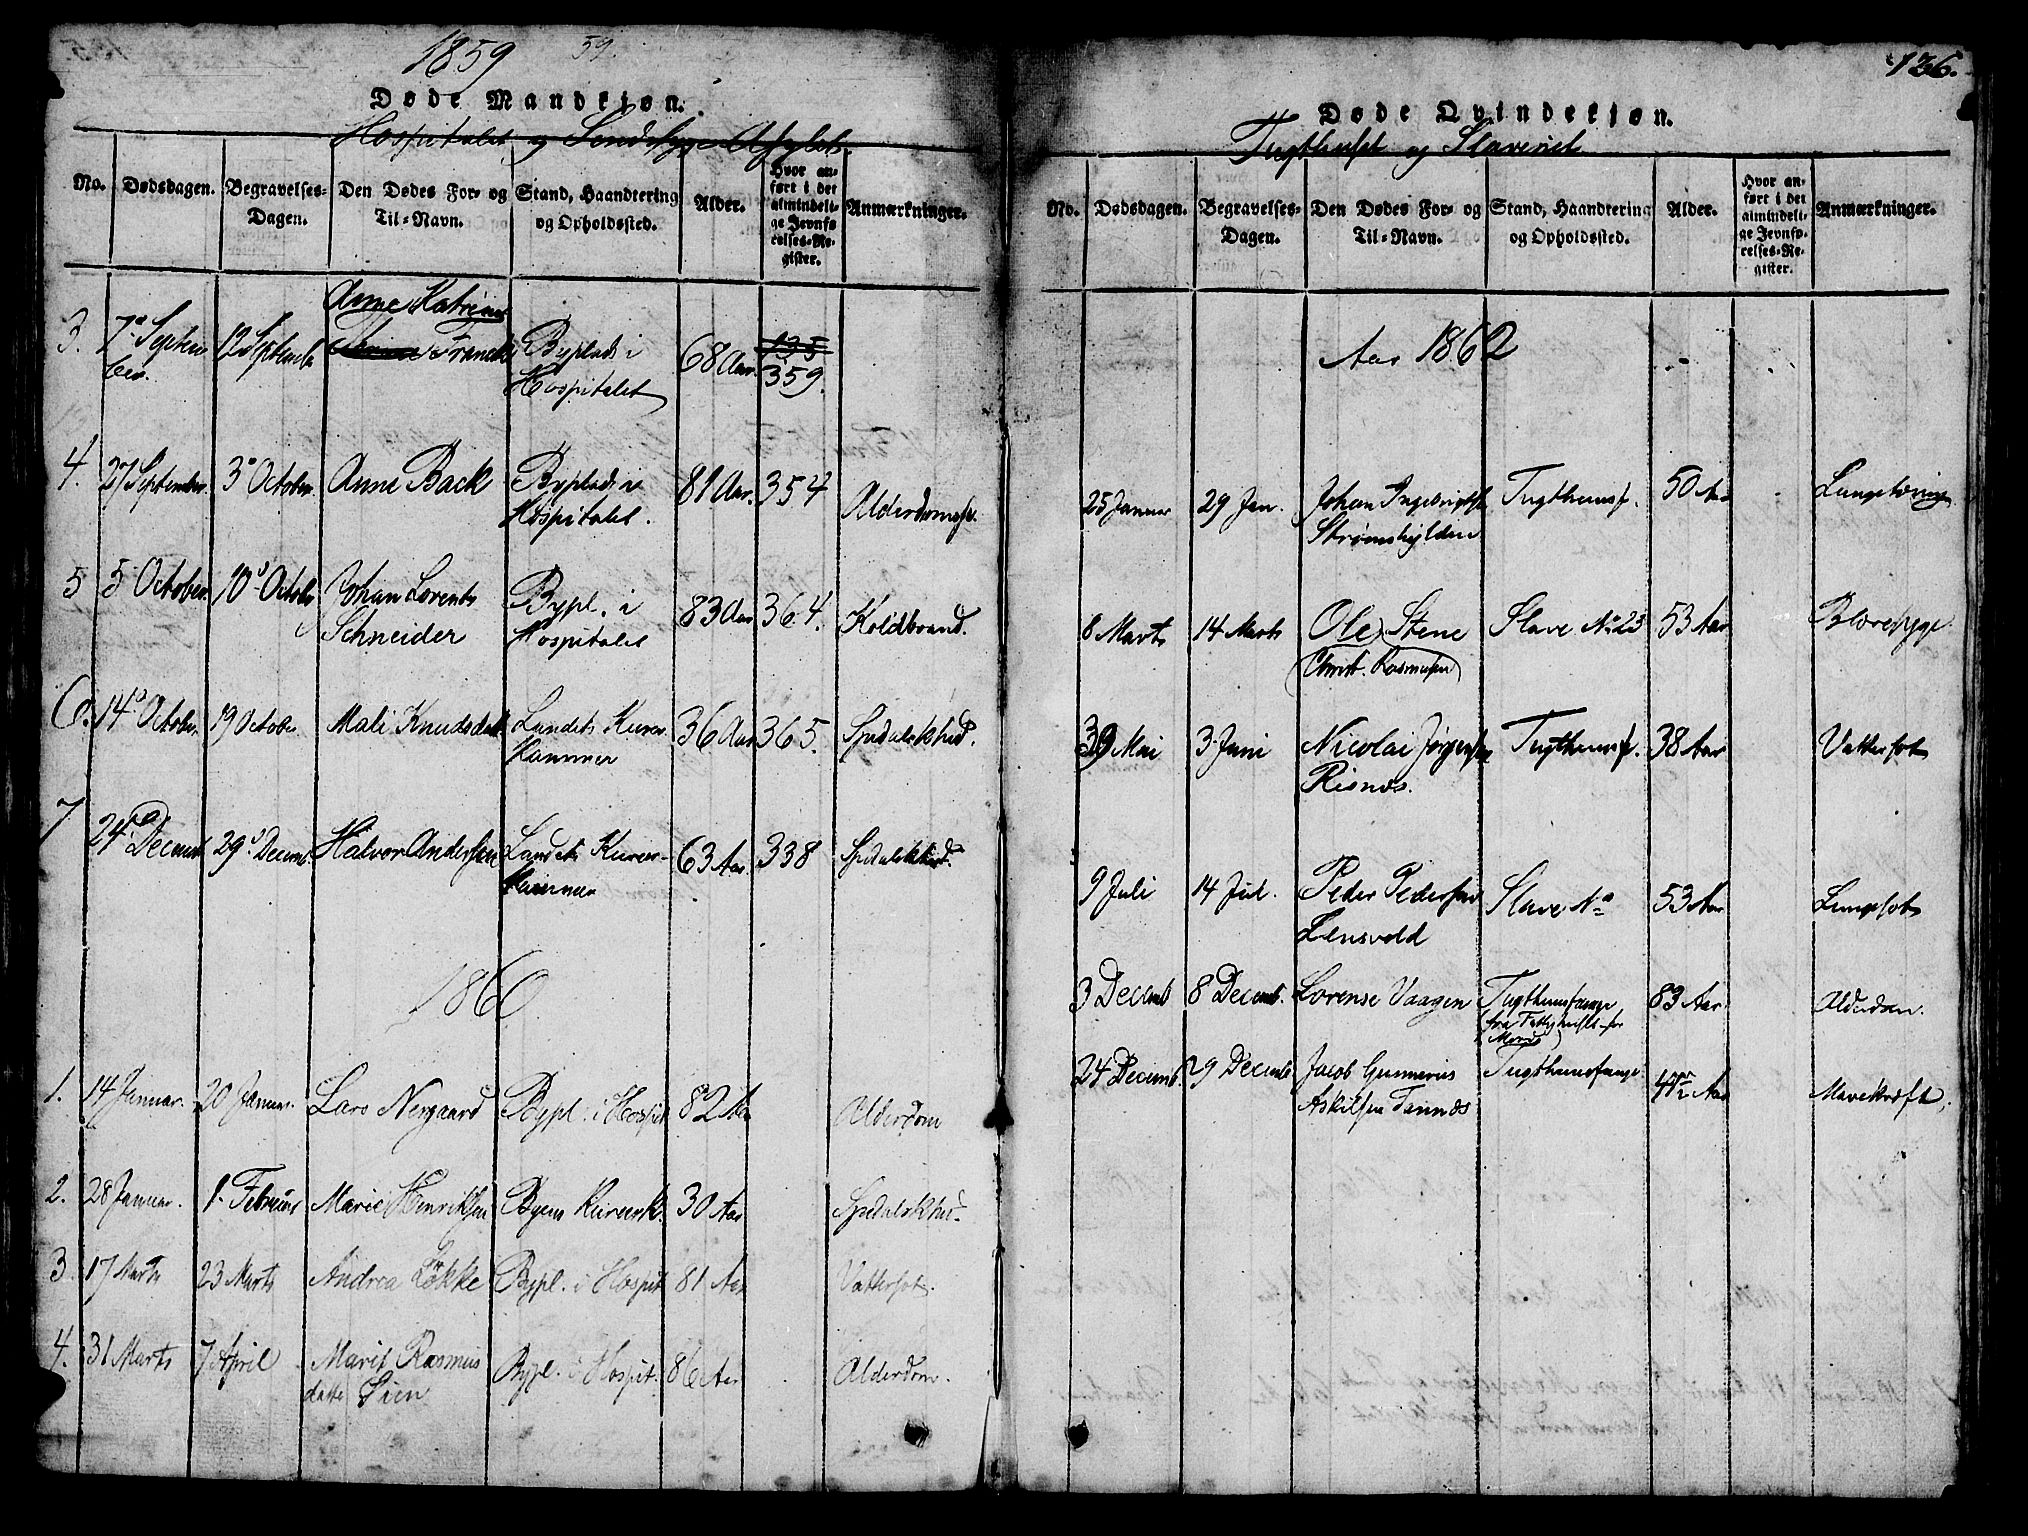 1859 59.
Døde Mandkjøn.
Hospitalet og Sindssyge Asylet.
No. Dødsdagen. Begravelses-Dagen. Den Dødes For- og Til-Navn. Stand, Haandtering og Opholdssted. Alder. Hvor anført i det almindelige Jevnførelses-Register. Anmærkninger.
Anne Katrine
3. 7de September. 12 September Franck Byplads i Hospitalet 68 Aar. 135 359.
4. 27 September. 3de October Anne Back Byplads i Hospitalet. 81 Aar. 354 Alderdomssv.
5 5 October. 10de Octob. Johan Lorents Schneider Bypl. i Hospitalet 83 Aar 364. Koldbrand.
6. 14de October. 19 October Mali Knudsdatt Landets Kurer Kammer 36 Aar 365. Spedalskhed.
7 24de Decemb 29de Decemb. Halvor Andersen Landets Kurer-Kammer 63 Aar 338 Spedalskhed.
1860
1. 14 Januar. 20 Januar. Lars Nergaard Bypl. i Hospit 82 Aar Alderdom
2. 28 Januar. 1. Februar Marie Henriksen Byens Kurerk. 30 Aar Spedalskhed.
3. 17 Marts 23 Marts Andrea Løkke Bypl. i Hospit 81 Aar Vattersot.
4. 31 Marts 7 April Marit Rasmusdatte Øien Bypl. i Hospit. 86 Aar Alderdom.
126.
Døde Qvindekjøn.
Tugthuset og Slaveriet
No. Dødsdagen. Begravelses-Dagen. Den Dødes For- og Til-Navn. Stand, Haandtering og Opholdssted. Alder. Hvor anført i det almindelige Jevnførelses-Register. Anmærkninger.
Aar 1862
25 Januar 29 Jan. Johan Ingebrigtsen Strømshylden Tugthusf. 50 Aar
8 Marts 14 Marts Ole Stene (Christ. Rasmussen) Slave No 23 53 Aar
Mai 3 Juni Nicolai Jørgensen Risnæs. Tugthusf. 38 Aar Vattersot
9 Juli 14 Jul. Peder Pedersen Lensvold Slave No 53 Aar Lungesot
3 Decemb 8 Decemb. Lorense Vaagen Tugthusfange (fra Fattighuset for Mord) 83 Aar Alderdom.
24 Decemb. 29 Decemb Jacob Gunnerius Askilsen Tannæs Tugthusfange 47 1/2 Aar Mavekræft.